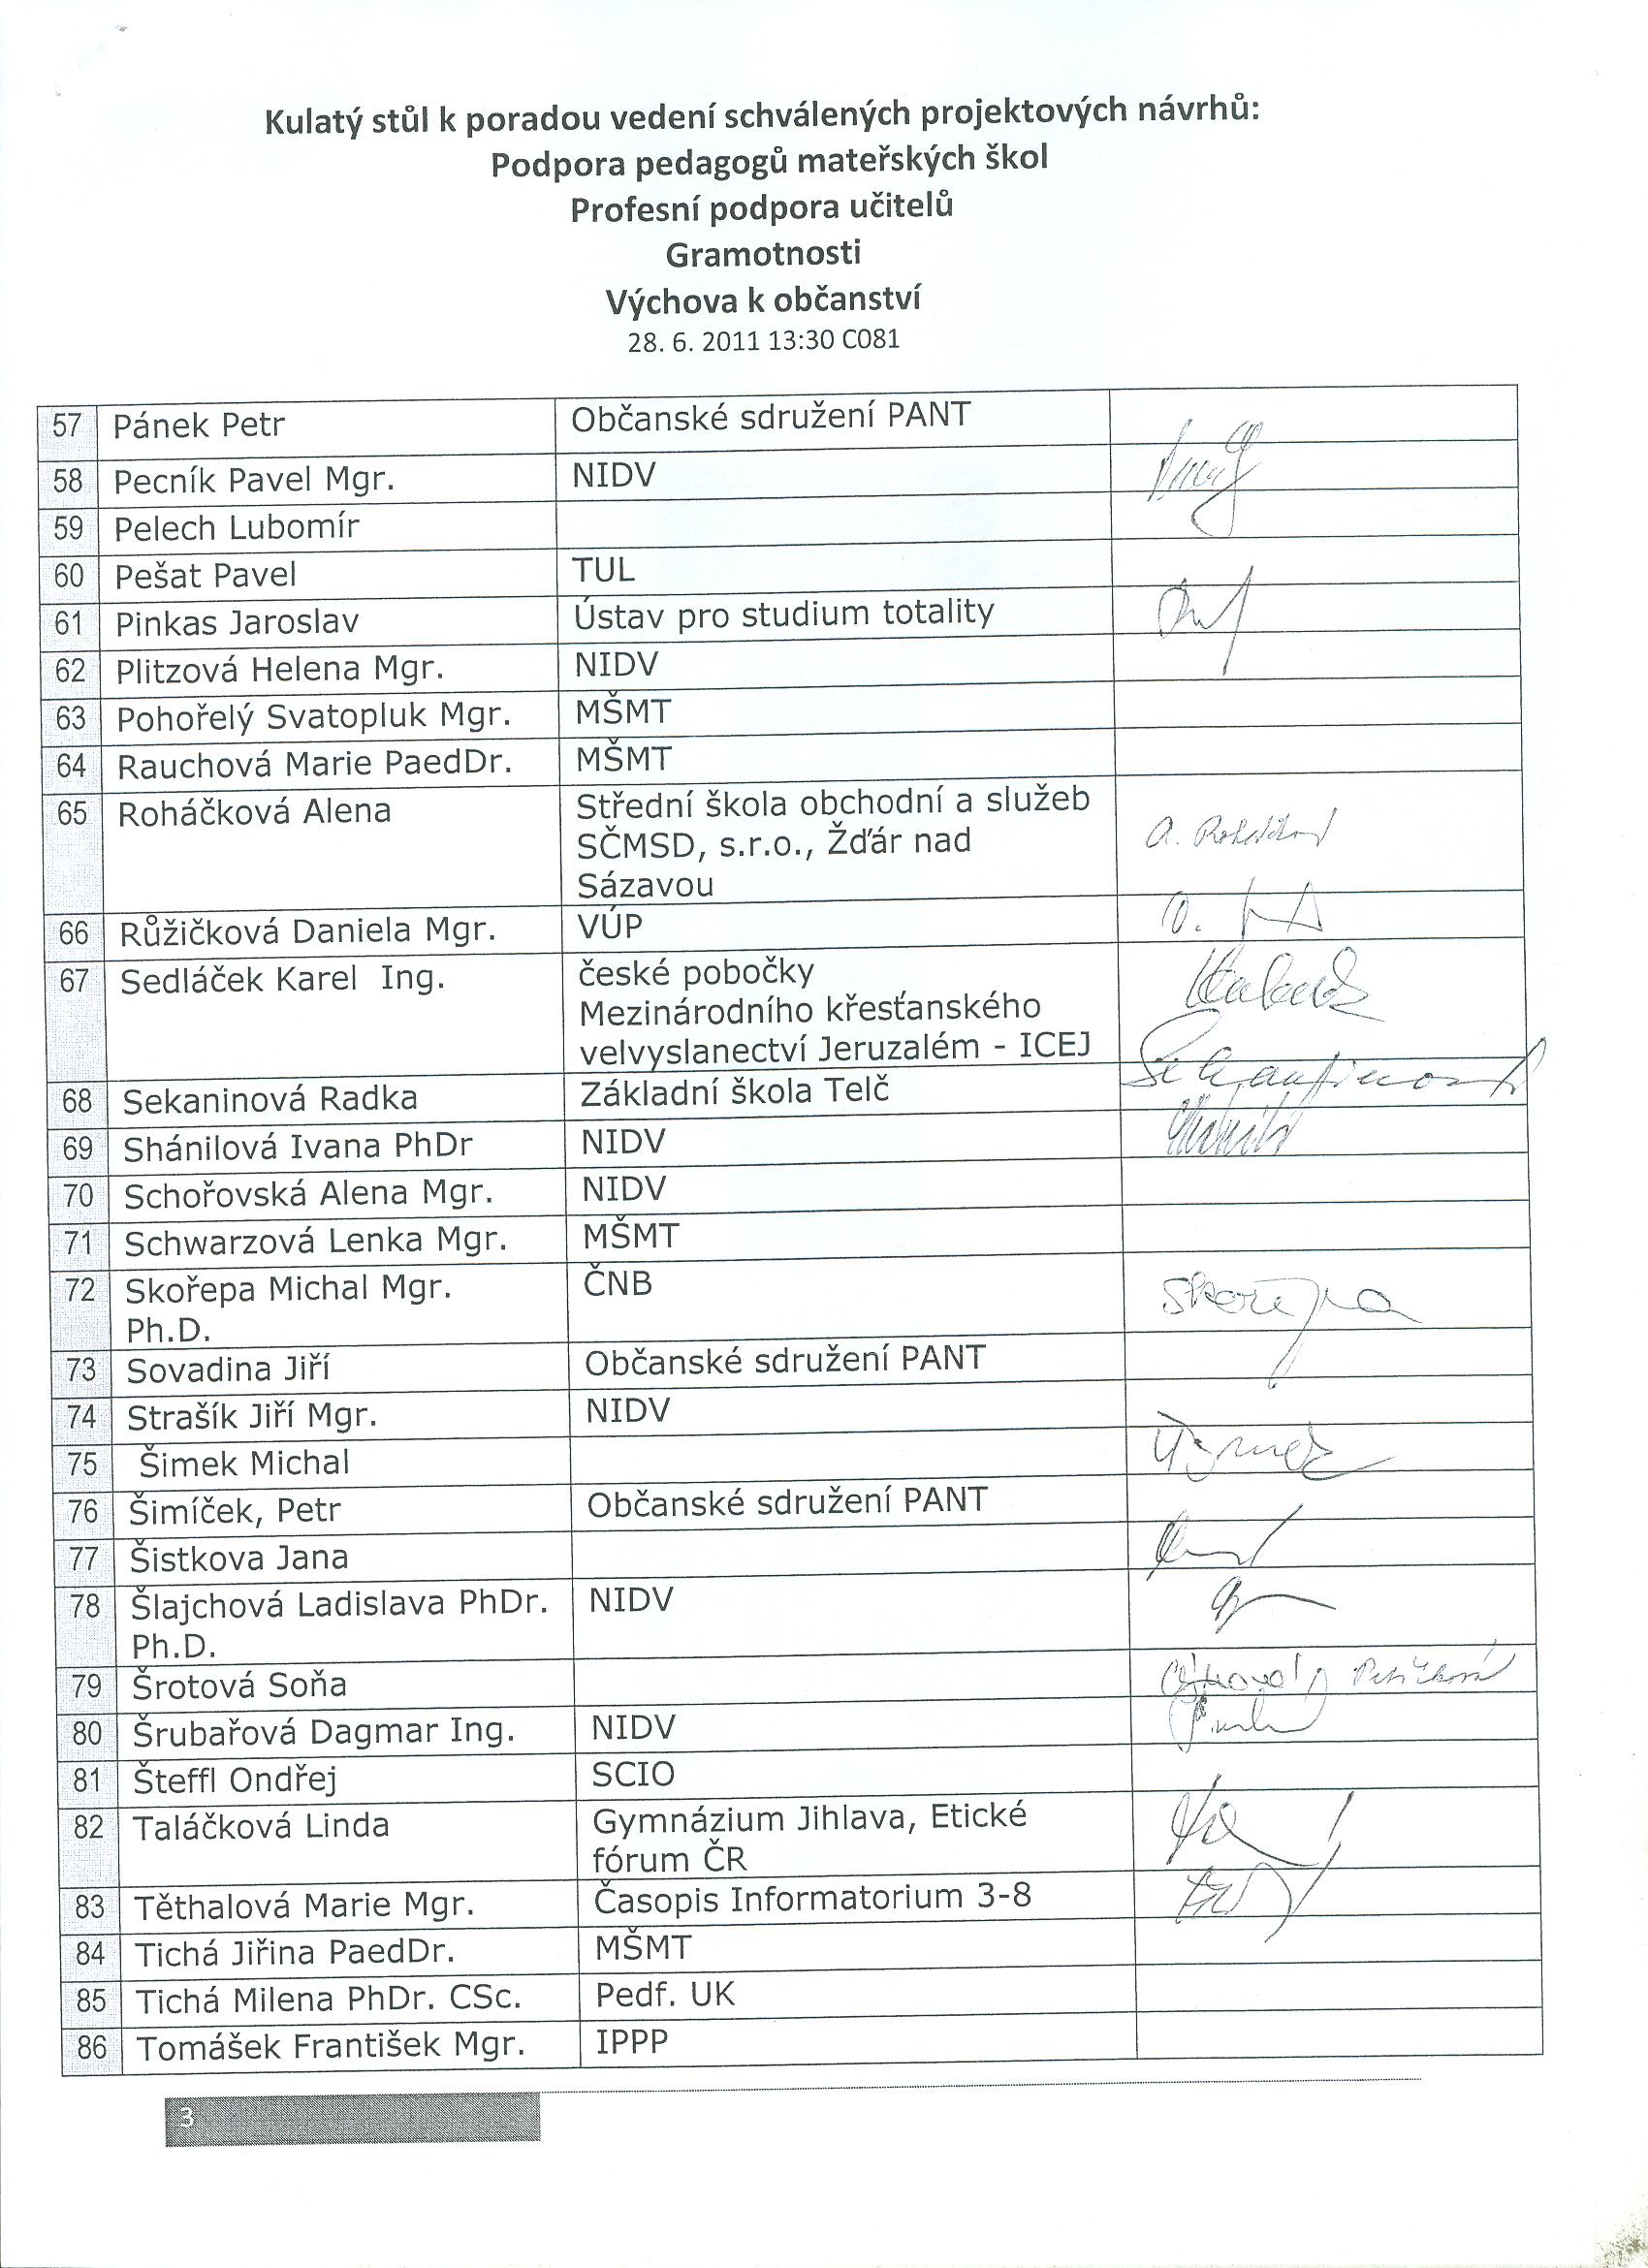 Kulatý stůl k poradou vedení schválených projektových návrhů:
Podpora pedagogů mateřských škol
Profesní podpora učitelů
Gramotnosti
Výchova k občanství
28. 6. 2011 13:30 C081
57 Pánek Petr Občanské sdružení PANT
58 Pecník Pavel Mgr. NIDV
59 Pelech Lubomír
60 Pešat Pavel TUL
61 Pinkas Jaroslav Ústav pro studium totality
62 Plitzová Helena Mgr. NIDV
63 Pohořelý Svatopluk Mgr. MŠMT
64 Rauchová Marie PaedDr. MŠMT
65 Roháčková Alena Střední škola obchodní a služeb
SČMSD, s.r.o., Žďár nad
Sázavou
66 Růžičková Daniela Mgr. VÚP
67 Sedláček Karel Ing. české pobočky
Mezinárodního křesťanského
velvyslanectví Jeruzalém - ICEJ
68 Sekaninová Radka Základní škola Telč
69 Shánilová Ivana PhDr NIDV
70 Schořovská Alena Mgr. NIDV
71 Schwarzová Lenka Mgr. MŠMT
72 Skořepa Michal Mgr. ČNB Skořepa
Ph.D.
73 Sovadina Jiří Občanské sdružení PANT
74 Strašík Jiří Mgr. NIDV
75 Šimek Michal
76 Šimíček, Petr Občanské sdružení PANT
77 Šistkova Jana
78 Šlajchová Ladislava PhDr. NIDV
Ph.D.
79 Šrotová Soňa
80 Šrubařová Dagmar Ing. NIDV
81 Šteffl Ondřej SCIO
82 Taláčková Linda Gymnázium Jihlava, Etické
fórum ČR
83 Těthalová Marie Mgr. Časopis Informatorium 3-8
84 Tichá Jiřina PaedDr. MŠMT
85 Tichá Milena PhDr. CSc. Pedf. UK
86 Tomášek František Mgr. IPPP
3